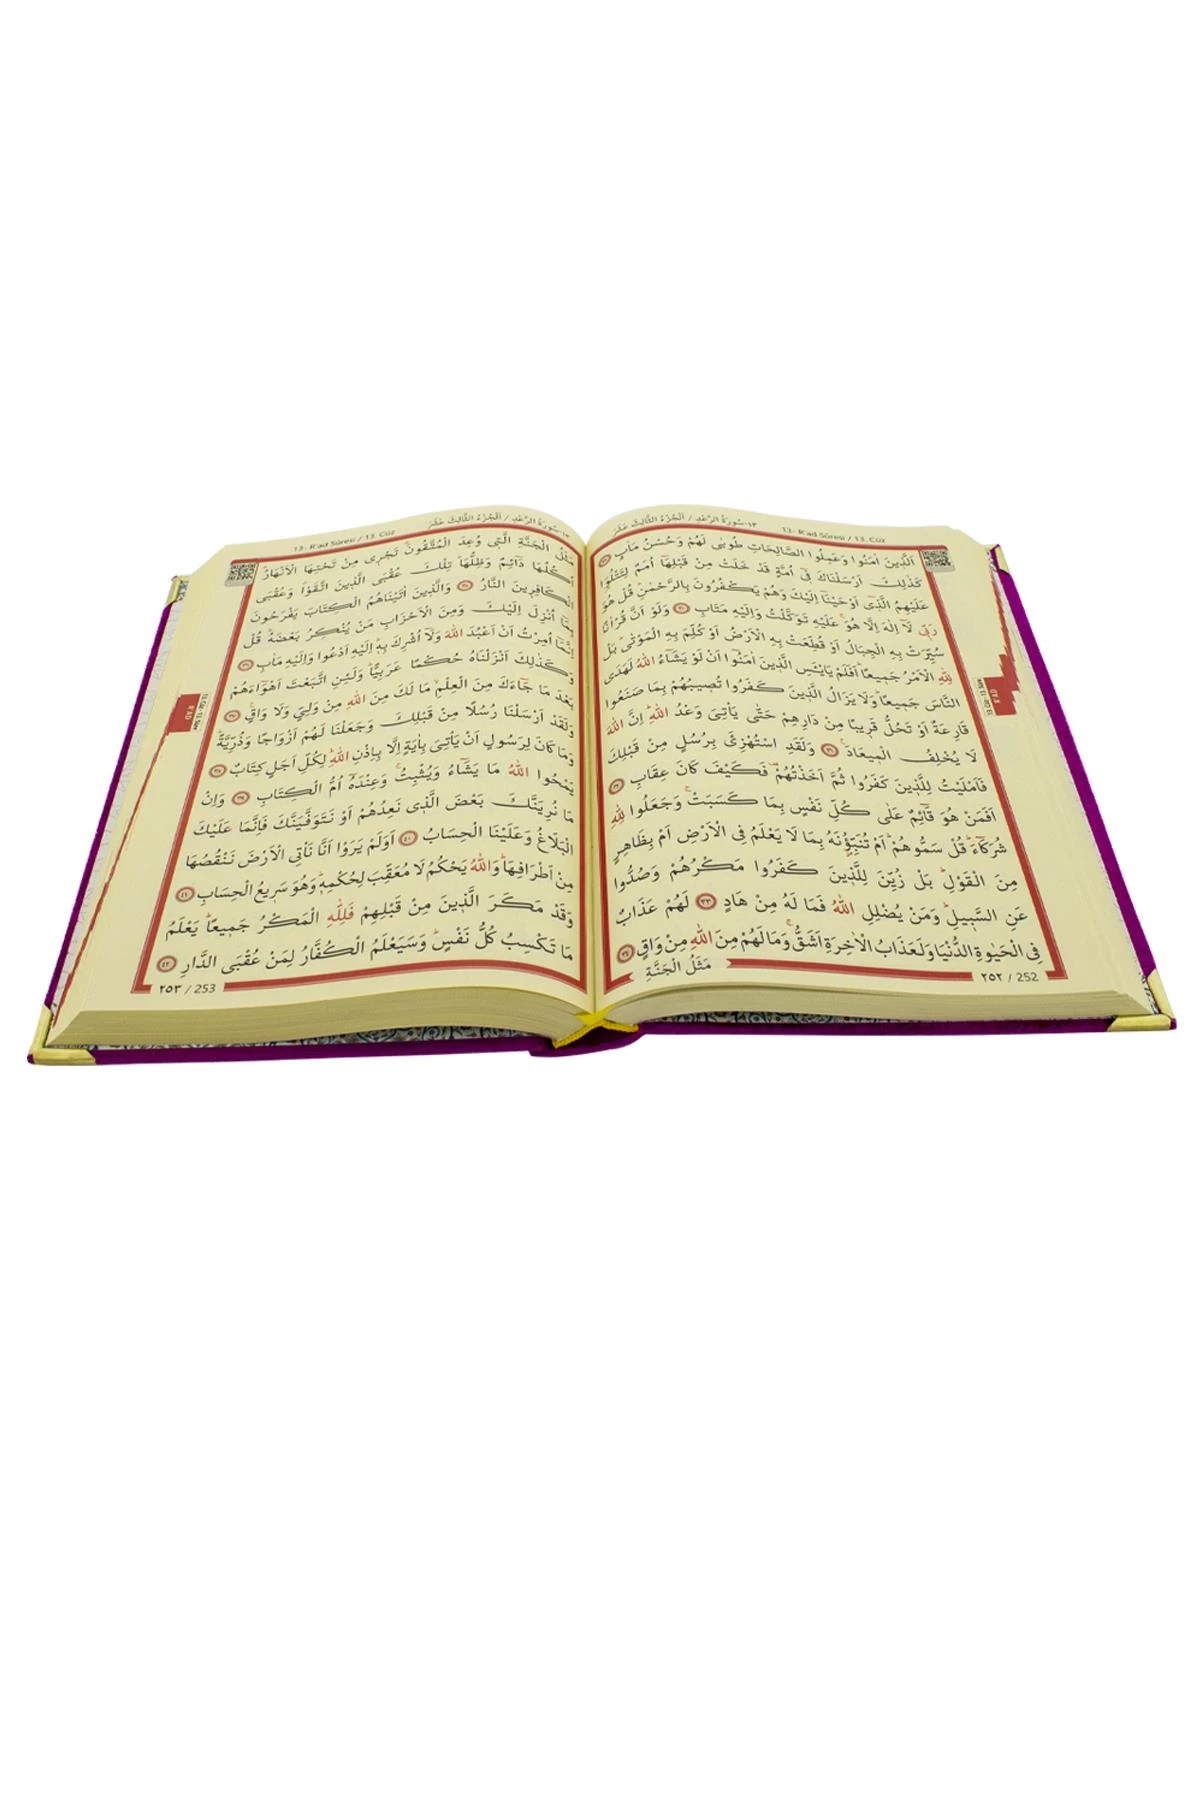 ١٣-سُورَةُ الرَّعْدِ / اَلْجُزْءُ الثَّالِثَ عَشَرَ
13- R'ad Sûresi / 13. Cüz
اَلَّذ۪ينَ اٰمَنُوا وَعَمِلُوا الصَّالِحَاتِ طُوبٰى لَهُمْ وَحُسْنُ مَاٰبٍ ﴿٢٩﴾
كَذٰلِكَ اَرْسَلْنَاكَ ف۪ٓي اُمَّةٍ قَدْ خَلَتْ مِنْ قَبْلِهَٓا اُمَمٌ لِتَتْلُوَا۬
عَلَيْهِمُ الَّذ۪ٓي اَوْحَيْنَٓا اِلَيْكَ وَهُمْ يَكْفُرُونَ بِالرَّحْمٰنِۜ قُلْ هُوَ
رَبّ۪ي لَٓا اِلٰهَ اِلَّا هُوَۚ عَلَيْهِ تَوَكَّلْتُ وَاِلَيْهِ مَتَابِ ﴿٣٠﴾ وَلَوْ اَنَّ قُرْاٰنًا
سُيِّرَتْ بِهِ الْجِبَالُ اَوْ قُطِّعَتْ بِهِ الْاَرْضُ اَوْ كُلِّمَ بِهِ الْمَوْتٰىۜ بَلْ
لِلّٰهِ الْاَمْرُ جَم۪يعًاۜ اَفَلَمْ يَايْـَٔسِ الَّذ۪ينَ اٰمَنُٓوا اَنْ لَوْ يَشَٓاءُ اللّٰهُ لَهَدَى
النَّاسَ جَم۪يعًاۜ وَلَا يَزَالُ الَّذ۪ينَ كَفَرُوا تُص۪يبُهُمْ بِمَا صَنَعُوا
قَارِعَةٌ اَوْ تَحُلُّ قَر۪يبًا مِنْ دَارِهِمْ حَتّٰى يَأْتِيَ وَعْدُ اللّٰهِۜ اِنَّ اللّٰهَ
لَا يُخْلِفُ الْم۪يعَادَ۟ ﴿٣١﴾ وَلَقَدِ اسْتُهْزِئَ بِرُسُلٍ مِنْ قَبْلِكَ
فَاَمْلَيْتُ لِلَّذ۪ينَ كَفَرُوا ثُمَّ اَخَذْتُهُمْ۠ فَكَيْفَ كَانَ عِقَابِ ﴿٣٢﴾
اَفَمَنْ هُوَ قَٓائِمٌ عَلٰى كُلِّ نَفْسٍ بِمَا كَسَبَتْۚ وَجَعَلُوا لِلّٰهِ
شُرَكَٓاءَۜ قُلْ سَمُّوهُمْۜ اَمْ تُنَبِّؤُ۫نَهُ بِمَا لَا يَعْلَمُ فِي الْاَرْضِ اَمْ بِظَاهِرٍ
مِنَ الْقَوْلِۜ بَلْ زُيِّنَ لِلَّذ۪ينَ كَفَرُوا مَكْرُهُمْ وَصُدُّوا
عَنِ السَّب۪يلِۜ وَمَنْ يُضْلِلِ اللّٰهُ فَمَا لَهُ مِنْ هَادٍ ﴿٣٣﴾ لَهُمْ عَذَابٌ
فِي الْحَيٰوةِ الدُّنْيَا وَلَعَذَابُ الْاٰخِرَةِ اَشَقُّۚ وَمَا لَهُمْ مِنَ اللّٰهِ مِنْ وَاقٍ ﴿٣٤﴾
مَثَلُ الْجَنَّةِ
٢٥٢ / 252
R'AD
١٣-سُورَةُ الرَّعْدِ / اَلْجُزْءُ الثَّالِثَ عَشَرَ
13- R'ad Sûresi / 13. Cüz
مَثَلُ الْجَنَّةِ الَّت۪ي وُعِدَ الْمُتَّقُونَۜ تَجْر۪ي مِنْ تَحْتِهَا الْاَنْهَارُۜ
اُكُلُهَا دَٓائِمٌ وَظِلُّهَاۜ تِلْكَ عُقْبَى الَّذ۪ينَ اتَّقَوْاۗ وَعُقْبَى
الْكَافِر۪ينَ النَّارُ ﴿٣٥﴾ وَالَّذ۪ينَ اٰتَيْنَاهُمُ الْكِتَابَ يَفْرَحُونَ
بِمَٓا اُنْزِلَ اِلَيْكَ وَمِنَ الْاَحْزَابِ مَنْ يُنْكِرُ بَعْضَهُۜ قُلْ
اِنَّمَٓا اُمِرْتُ اَنْ اَعْبُدَ اللّٰهَ وَلَٓا اُشْرِكَ بِه۪ۜ اِلَيْهِ اَدْعُوا وَاِلَيْهِ مَاٰبِ ﴿٣٦﴾
وَكَذٰلِكَ اَنْزَلْنَاهُ حُكْمًا عَرَبِيًّاۜ وَلَئِنِ اتَّبَعْتَ اَهْوَٓاءَهُمْ
بَعْدَ مَا جَٓاءَكَ مِنَ الْعِلْمِۙ مَا لَكَ مِنَ اللّٰهِ مِنْ وَلِيٍّ وَلَا وَاقٍ۟ ﴿٣٧﴾
وَلَقَدْ اَرْسَلْنَا رُسُلًا مِنْ قَبْلِكَ وَجَعَلْنَا لَهُمْ اَزْوَاجًا وَذُرِّيَّةًۜ
وَمَا كَانَ لِرَسُولٍ اَنْ يَأْتِيَ بِاٰيَةٍ اِلَّا بِاِذْنِ اللّٰهِۜ لِكُلِّ اَجَلٍ كِتَابٌ ﴿٣٨﴾
يَمْحُوا اللّٰهُ مَا يَشَٓاءُ وَيُثْبِتُۚ وَعِنْدَهُٓ اُمُّ الْكِتَابِ ﴿٣٩﴾ وَاِنْ
مَا نُرِيَنَّكَ بَعْضَ الَّذ۪ي نَعِدُهُمْ اَوْ نَتَوَفَّيَنَّكَ فَاِنَّمَا عَلَيْكَ
الْبَلَاغُ وَعَلَيْنَا الْحِسَابُ ﴿٤٠﴾ اَوَلَمْ يَرَوْا اَنَّا نَأْتِي الْاَرْضَ نَنْقُصُهَا
مِنْ اَطْرَافِهَاۜ وَاللّٰهُ يَحْكُمُ لَا مُعَقِّبَ لِحُكْمِه۪ۜ وَهُوَ سَر۪يعُ الْحِسَابِ ﴿٤١﴾
وَقَدْ مَكَرَ الَّذ۪ينَ مِنْ قَبْلِهِمْ فَلِلّٰهِ الْمَكْرُ جَم۪يعًاۜ يَعْلَمُ
مَا تَكْسِبُ كُلُّ نَفْسٍۜ وَسَيَعْلَمُ الْكُفَّارُ لِمَنْ عُقْبَى الدَّارِ ﴿٤٢﴾
٢٥٣ / 253
R'AD